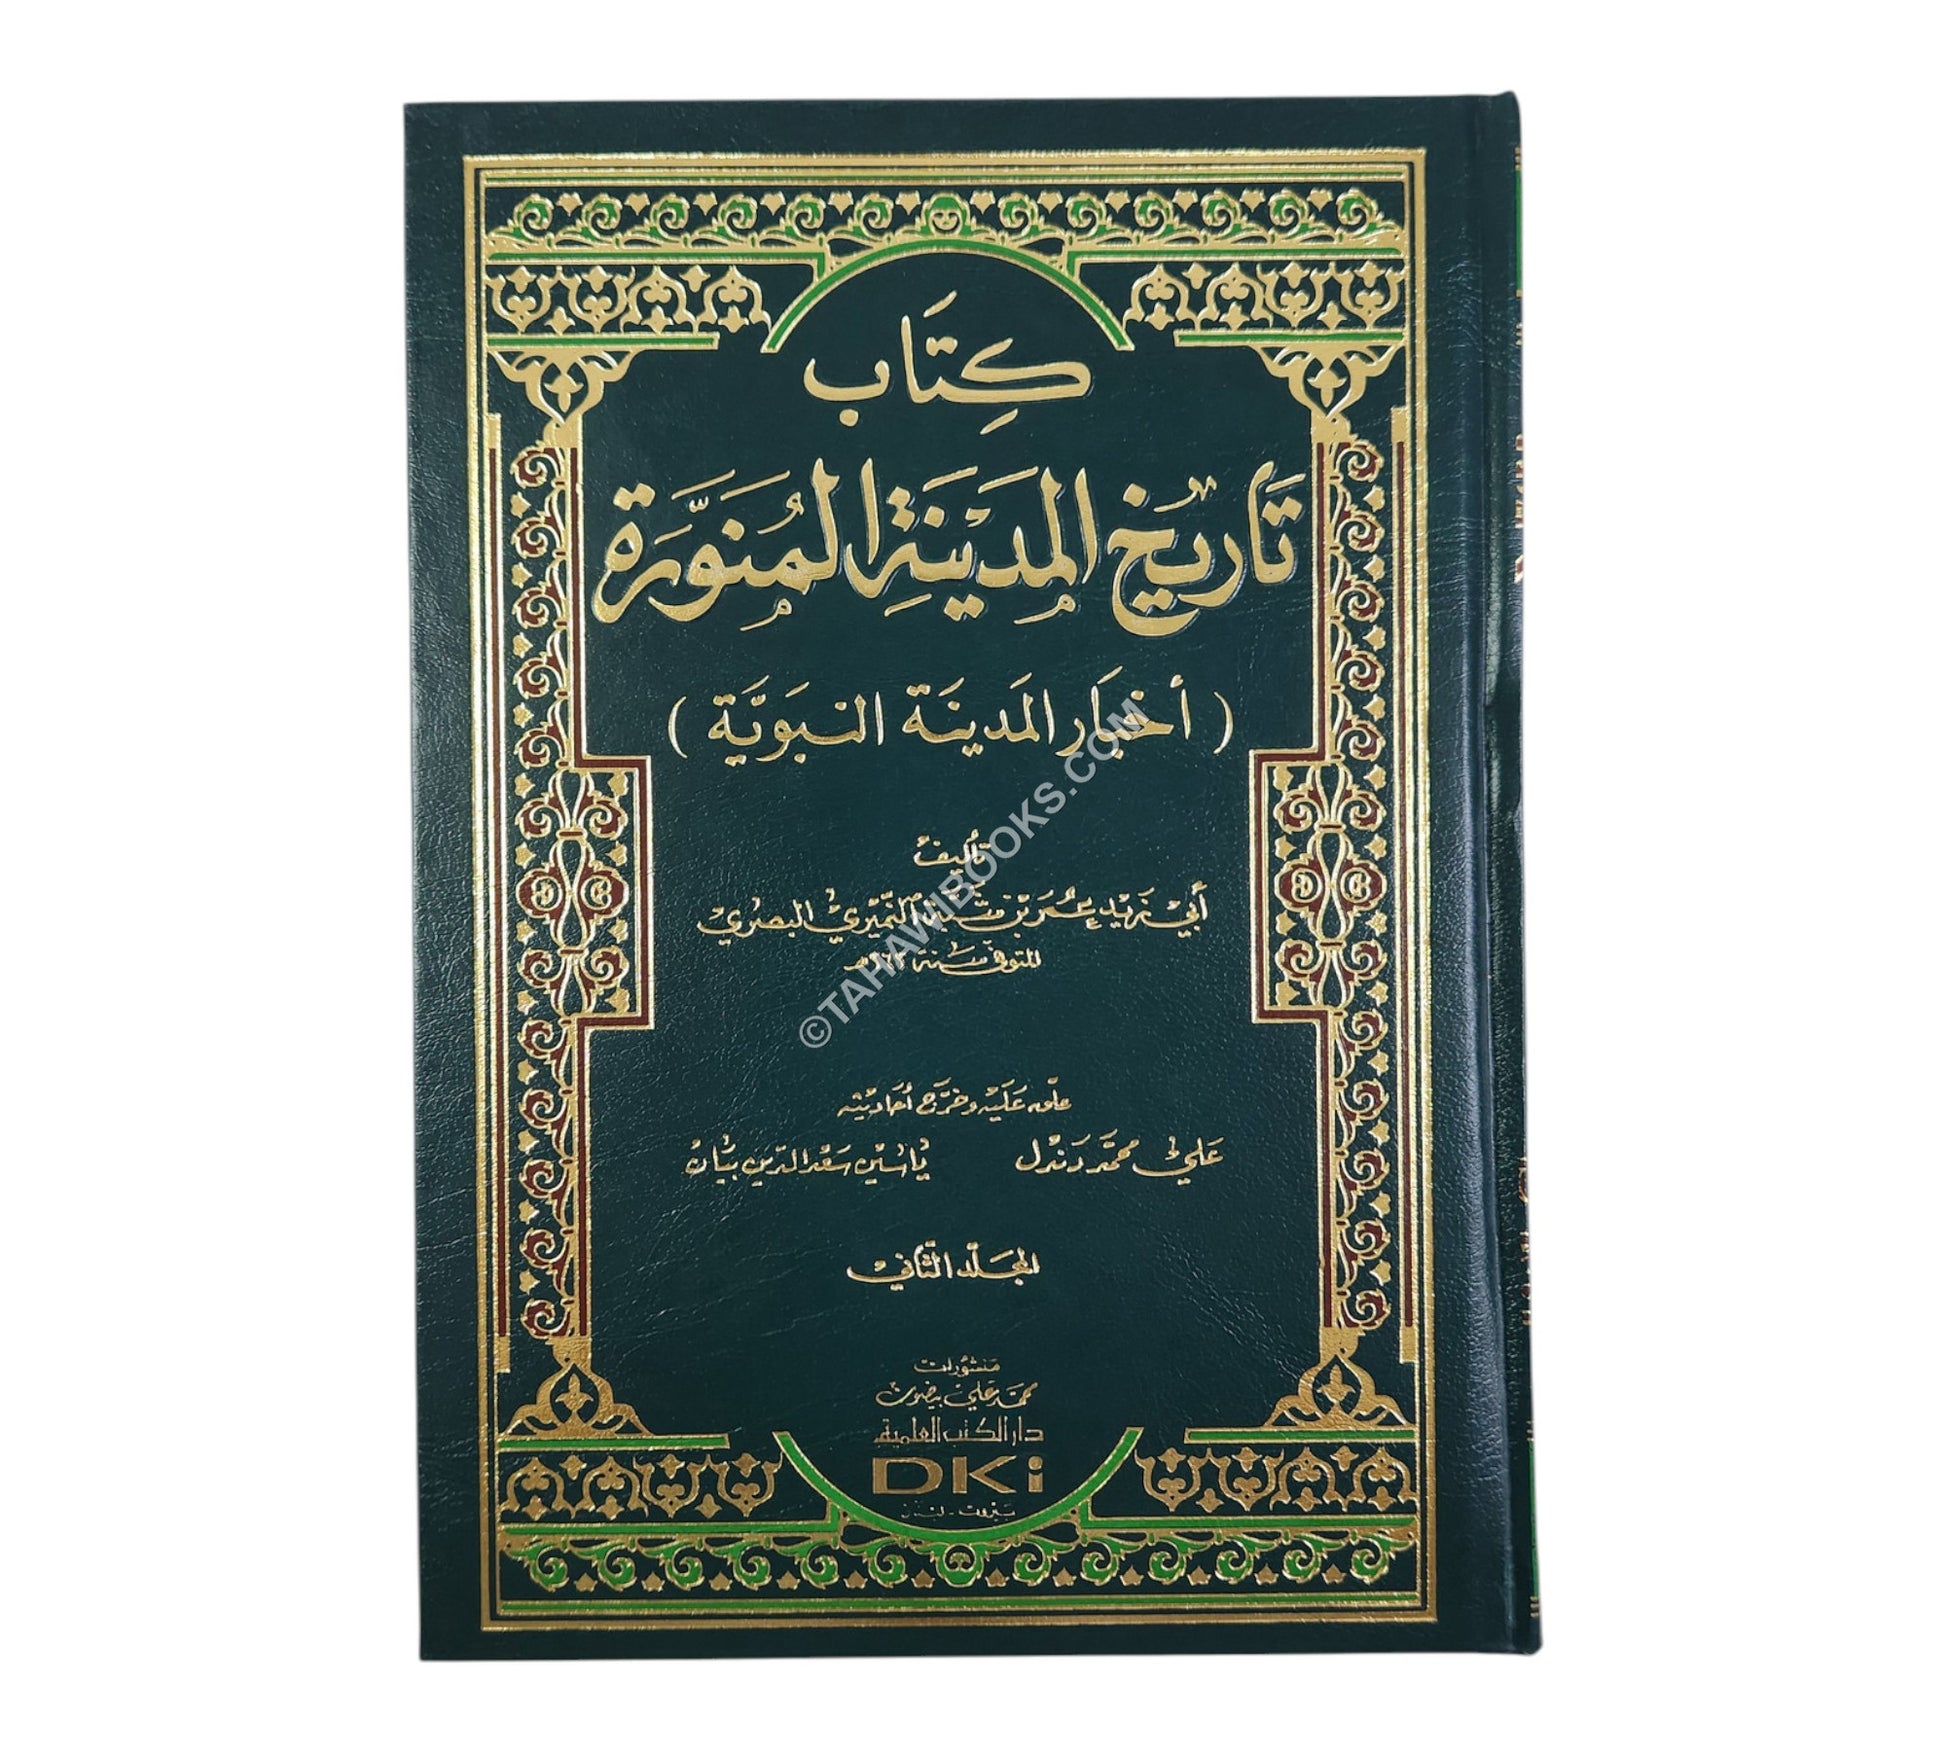 كِتَاب
تَاريخ المَدينَةِ المُنوَّرَة
( أخبَار المَدينَة النبَويَّة )
تأليف
أبي زيد عمر بن شبة النميري البصري
المتوفى سنة ٢٦٢هـ
علق عليه وخرَّج أحاديثه
علي محمد دندل ياسين سعد الدين بيان
المجلد الثاني
منشورات
محمد علي بيضون
دار الكتب العلمية
DKi
بيروت - لبنان
©TAHAWIBOOKS.COM